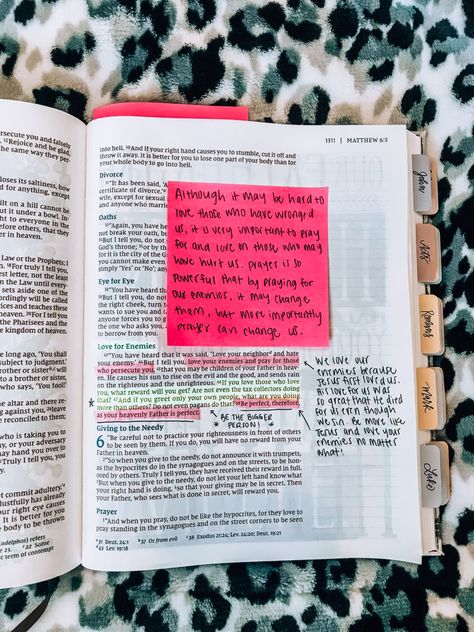 1311 | MATTHEW 6:5
secute you and falsely
Rejoice and be glad,
the same way they per-
loses its saltiness, how
ed for anything, except
ilt on a hill cannot be
ut it under a bowl. In-
ives light to everyone
before others, that they
er in heaven.
e Law or the Prophets; I
For truly I tell you,
mallest letter, not the least
m the Law until every-
sets aside one of these
ordingly will be called
tices and teaches these
the Pharisees and the
the kingdom of heaven.
ple long ago, 'You shall
subject to judgment.'
brother or sister
to a brother or sister,
who says, 'You fool!'
he altar and there re-
gainst you, leave
reconciled to them;
who is taking you to
r your adversary may
you over to the officer,
Truly I tell you, you
commit adultery.'
right eye causes
It is better for you
be thrown
into hell. And if your right hand causes you to stumble, cut it off and
throw it away. It is better for you to lose one part of your body than for
your whole body to go into hell.
Divorce
"It has been said,
certificate of divorce.'
wife, except for sexual
and anyone who marri
Oaths
"Again, you have
not break your oath, bu
But I tell you, do not
God's throne; or by th
it is the city of the Gre
you cannot make even
simply 'Yes' or 'No';
Eye for Eye
"You have heard tha
But I tell you, do not
the right cheek, turn t
wants to sue you and ta
anyone forces you to g
the one who asks you,
to borrow from you.
Although it may be hard to
love those who have wronged
us, it is very important to pray
for and love on those who may
have hurt us. prayer is so
powerful that by praying for
our enemies, it may change
them, but more importantly
prayer can change us.
Love for Enemies
"You have heard that it was said, 'Love your neighbor and hate
your enemy.' But I tell you, love your enemies and pray for those
who persecute you, that you may be children of your Father in heav-
en. He causes his sun to rise on the evil and the good, and sends rain
on the righteous and the unrighteous. If you love those who love
you, what reward will you get? Are not even the tax collectors doing
that? And if you greet only your own people, what are you doing
more than others? Do not even pagans do that? Be perfect, therefore,
as your heavenly Father is perfect.
BE THE BIGGER
PERSON!
We love our
enemies because
Jesus first loved us.
His love for us was
so great that he died
for us even though
we sin. Be more like
Jesus and love your
enemies no matter
what!
Giving to the Needy
6 "Be careful not to practice your righteousness in front of others
to be seen by them. If you do, you will have no reward from your
Father in heaven.
"So when you give to the needy, do not announce it with trumpets,
as the hypocrites do in the synagogues and on the streets, to be hon-
ored by others. Truly I tell you, they have received their reward in full.
But when you give to the needy, do not let your left hand know what
your right hand is doing, so that your giving may be in secret. Then
your Father, who sees what is done in secret, will reward you.
Prayer
"And when you pray, do not be like the hypocrites, for they love to
pray standing in the synagogues and on the street corners to be seen
31 Deut. 24:1 37 Or from evil 38 Exodus 21:24; Lev. 24:20; Deut. 19:21
43 Lev. 19:18
John
Acts
Romans
Mark
Luke